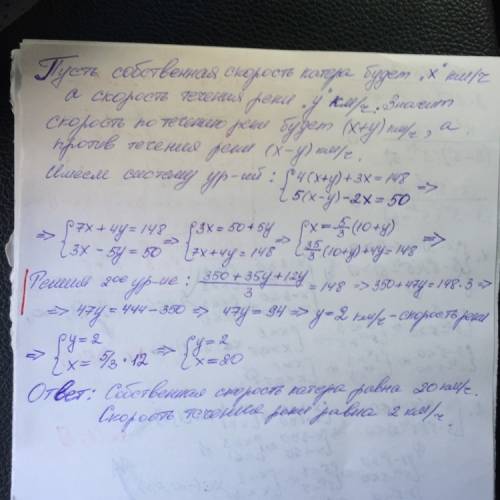 Пусть собственная скорость катера будет „х" км/ч
а скорость течения реки „у" км/ч. Значит
скорость по течению реки будет (х+у) км/ч, а
против течения реки (х-у) км/ч.
Имеем систему ур-ий: { 4(х+у)+3х=148 5(х-у)-2х=50 =>
=> { 7х+4у=148 3х-5у=50 => { 3х=50+5у 7х+4у=148 => { х=5/3(10+у) 35/3(10+у)+4у=148 =>
Решим 2ое ур-ие: (350+35у+12у)/3 =148 => 350+47у=148·3 =>
=> 47у=444-350 => 47у=94 => у=2 км/ч - скорость реки
=> { у=2 х=5/3·12 => { у=2 х=20
Ответ: Собственная скорость катера равна 20 км/ч.
Скорость течения реки равна 2 км/ч.